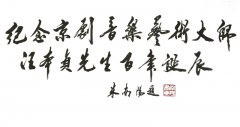 纪念京剧音乐艺术大师
汪本贞先生百年诞辰
朱南陽題